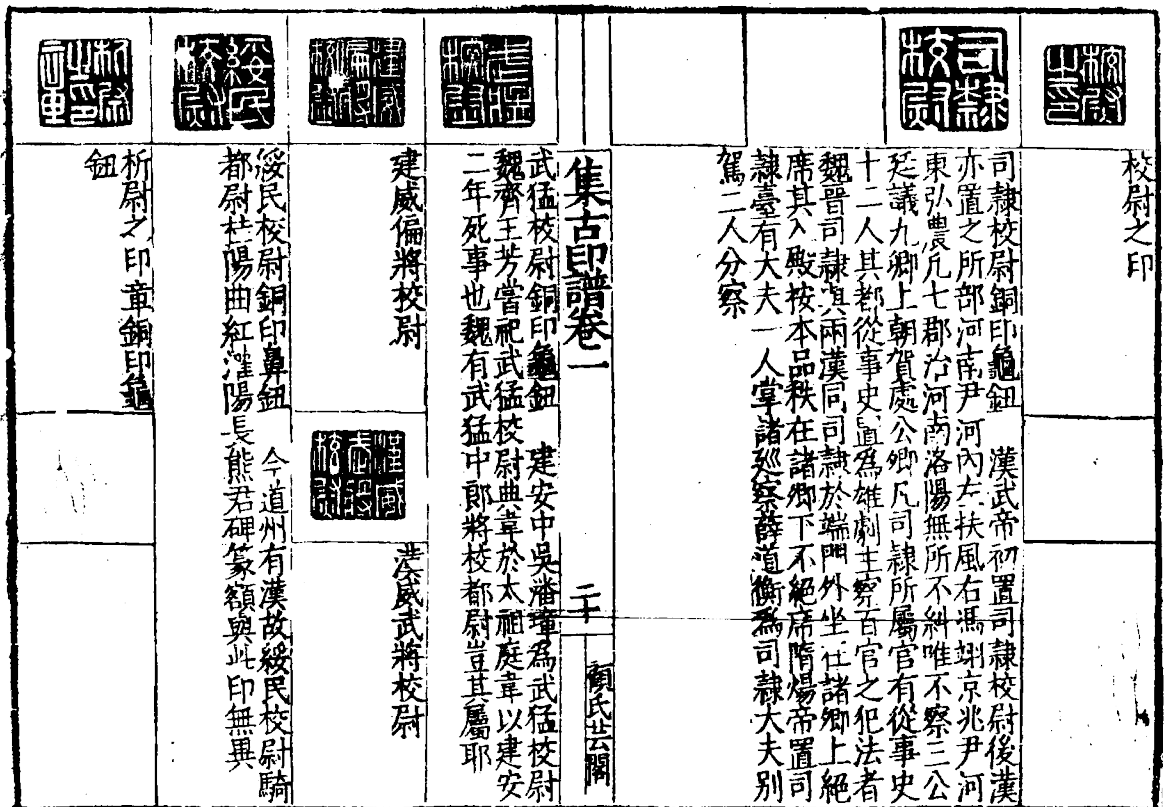 校尉之印
校尉之印
司隸校尉
司隸校尉銅印龜鈕　漢武帝初置司隸校尉後漢
亦置之所部河南尹河內左扶風右馮翊京兆尹河
東弘農凡七郡治河南洛陽無所不糾唯不察三公
廷議九卿上朝賀處公卿凡司隸所屬官有從事史
十二人其都從事史置為雄劇主察百官之犯法者
魏晉司隸與兩漢同司隸於端門外坐在諸卿上絕
席其入殿按本品秩在諸卿下不絕席隋煬帝置司
隸臺有大夫一人掌諸廵察薛道衡為司隸大夫別
駕二人分察
集古印譜卷二
二十
顧氏芸閣
武猛校尉
武猛校尉銅印龜鈕　建安中吳潘璋為武猛校尉
魏齊王芳嘗祀武猛校尉典韋於太祖庭韋以建安
二年死事也魏有武猛中郎將校都尉豈其屬耶
建威偏將校尉
建威偏將校尉
漢威武將校尉
漢威武將校尉
綏民校尉
綏民校尉銅印鼻鈕　今道州有漢故綏民校尉騎
都尉桂陽曲紅灌陽長熊君碑篆額與此印無異
析尉之印章
析尉之印章銅印龜
鈕